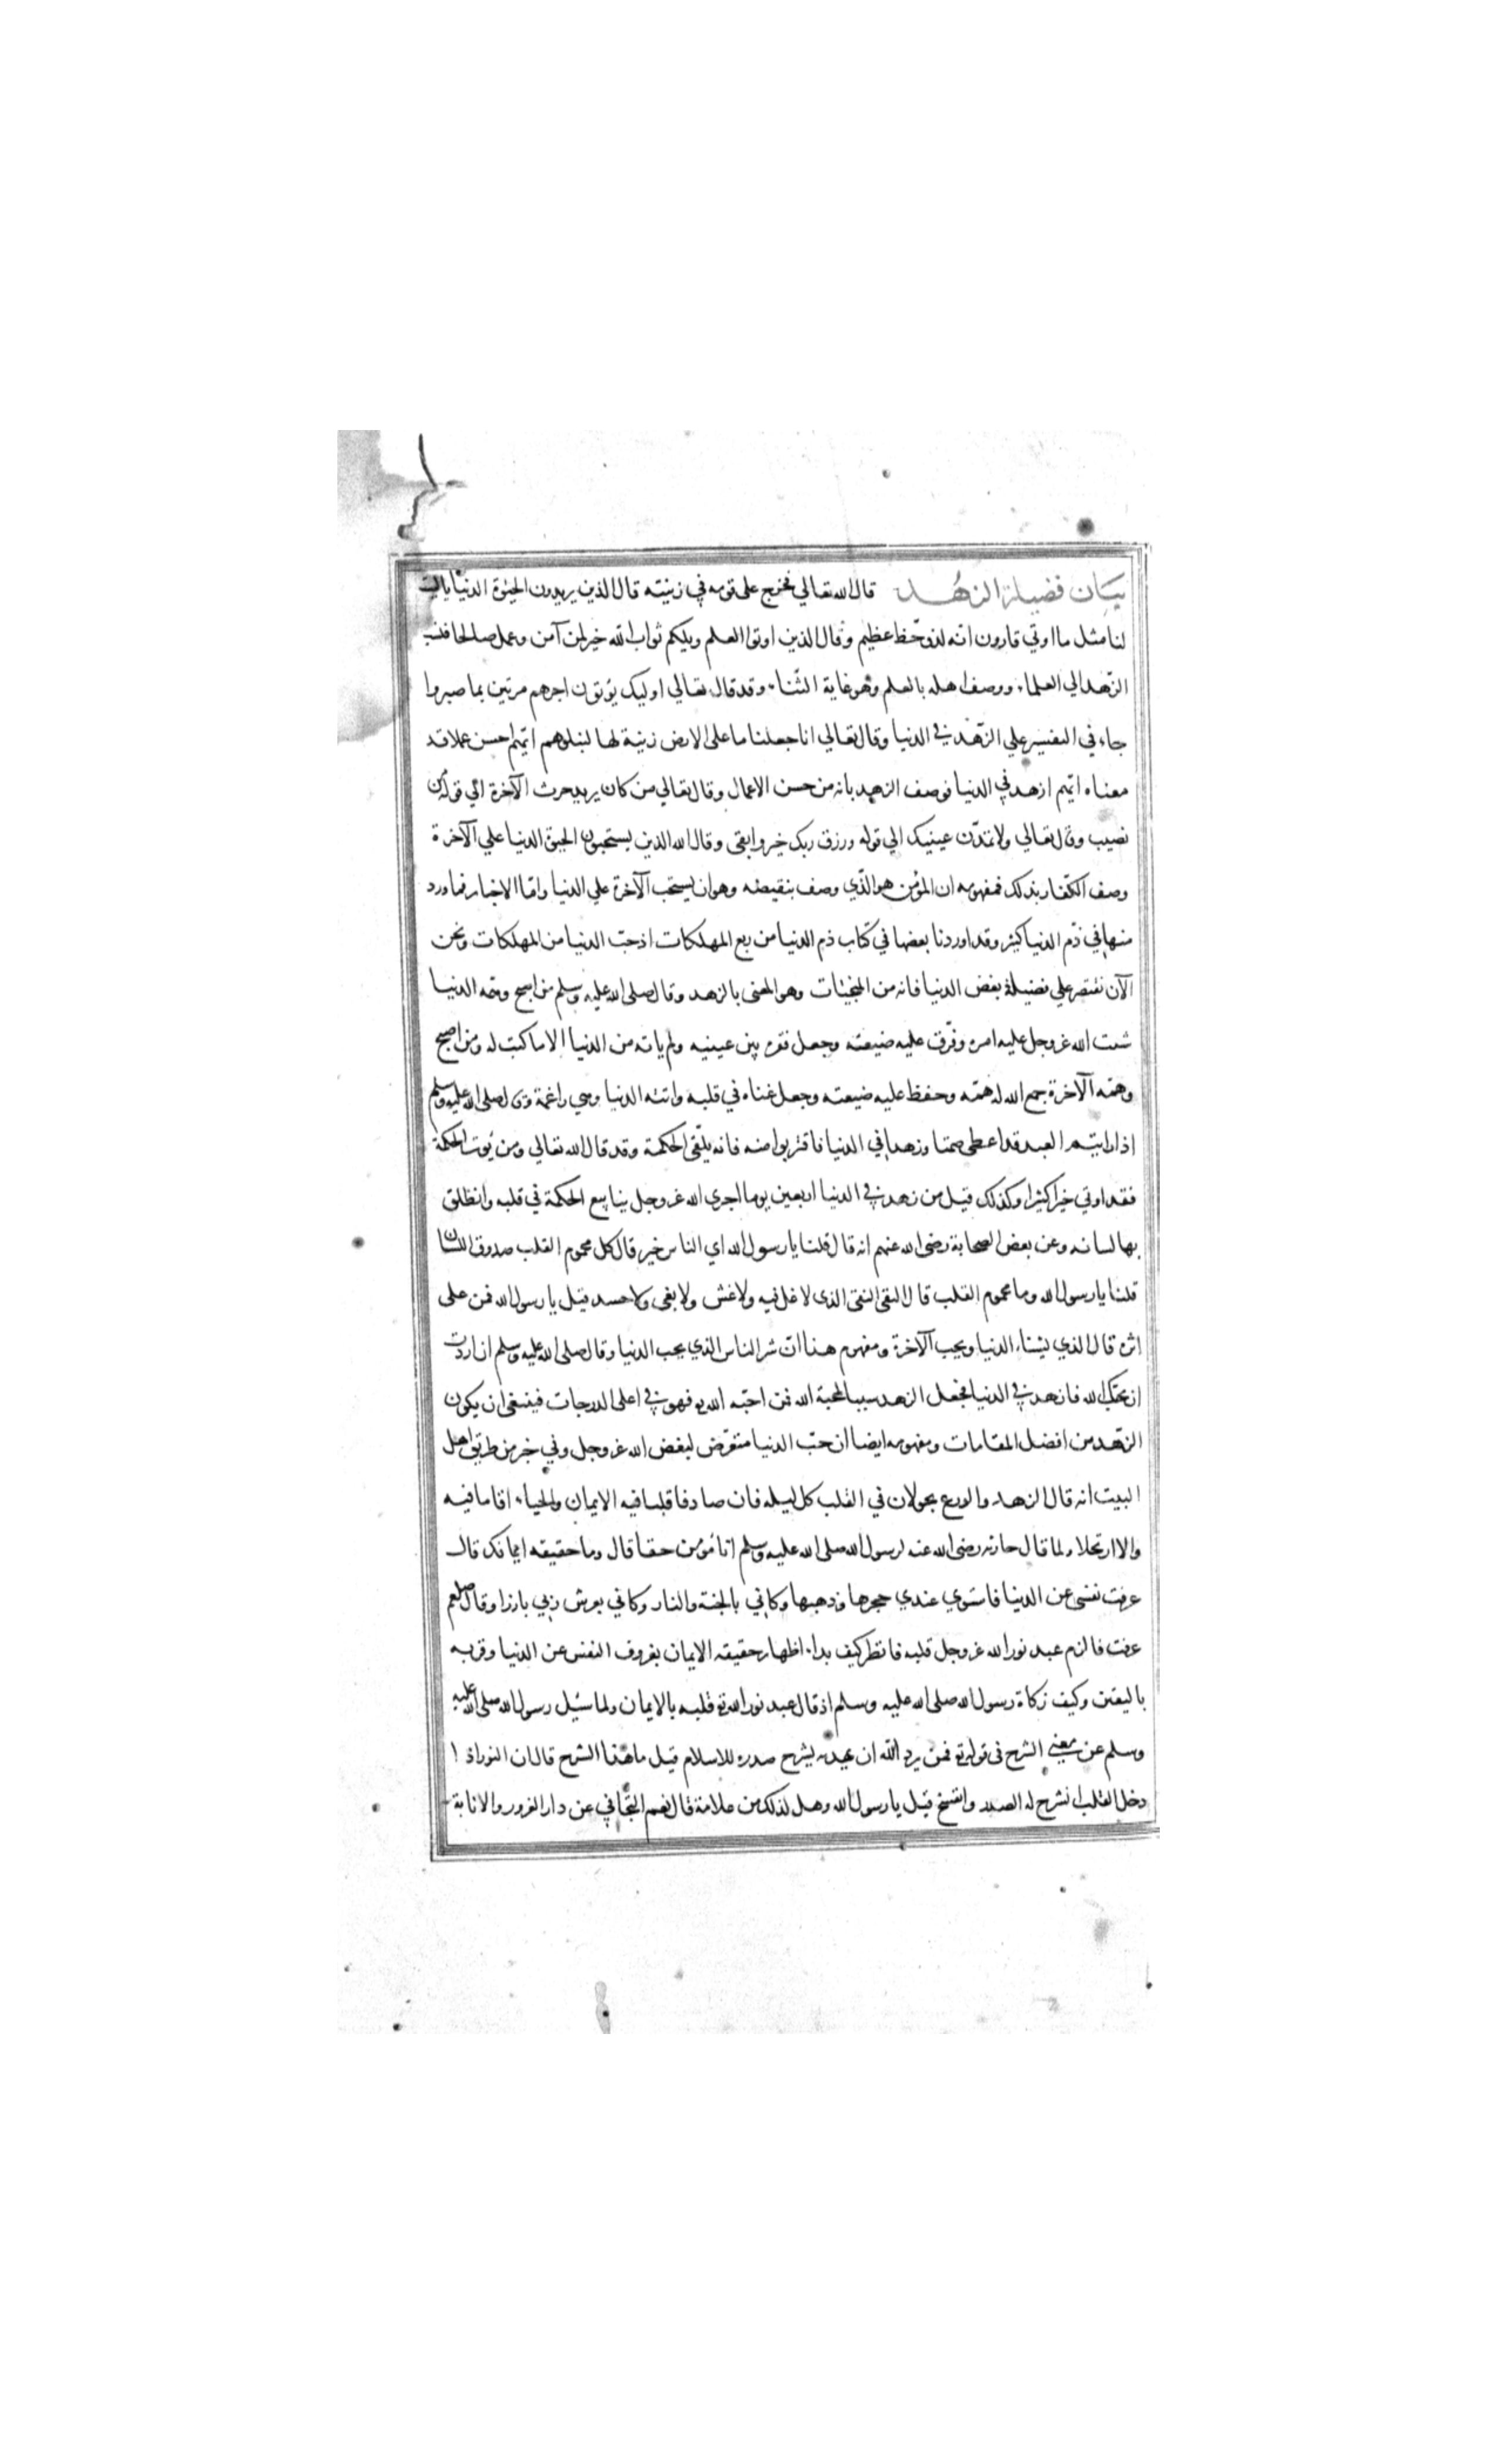 بيان فضيلة الزهد قال الله تعالي فخرج علي قومه في زينته قال الذين يريدون الحيوة الدنيا ياليت
لنا مثل ما اوتي قارون انه لذو حظ عظيم وقال الذين اوتوا العلم ويلكم ثواب الله خير لمن آمن وعمل صالحا فنسب
الزهد الي العلماء ووصف اهله بالعلم وهو غاية الثناء وقد قال تعالي اوليك يؤتون اجرهم مرتين بما صبروا
جاء في التفسير علي الزهد في الدنيا وقال تعالي انا جعلنا ما على الارض زينة لها لنبلوهم ايهم احسن عملا قد
معناه ايهم ازهد في الدنيا فوصف الزهد بانه من حسن الاعمال وقال تعالي من كان يريد حرث الآخرة الي قوله من
نصيب وقال تعالي ولا تمدّن عينيك الي قوله ورزق ربك خير وابقى وقال الله الذين يستحبون الحيوة الدنيا علي الآخرة
وصف الكفار بذلك فمفهومه ان المؤمن هو الذّي وصف بنقيضه وهو ان يستحب الآخرة علي الدنيا وامّا الاخبار فما ورد
منها في ذم الدنيا كثير وقد اوردنا بعضها في كتاب ذم الدنيا من ربع المهلكات اذ حبّ الدنيا من المهلكات ونحن
الآن نقتصر علي فضيلة بغض الدنيا فانه من المنجيات وهو المعنى بالزهد وقال صلى الله عليه وسلم من اصبح وهمه الدنيا
شتت الله عز وجل عليه امره وفرّق عليه ضيعته وجعل فقره بين عينيه ولم ياته من الدنيا الا ما كتب له ومن اصبح
وهمّه الآخرة جمع الله له همّه وحفظ عليه ضيعته وجعل غناه في قلبه واتته الدنيا وهي راغمة وقال صلى الله عليه وسلم
اذا رايتم العبد قد اعطى صمتا وزهدا في الدنيا فاقتربوا منه فانه يلّقى الحكمة وقد قال الله تعالي ومن يوت الحكمة
فقد اوتي خيرا كثيرا وكذلك قيل من زهد في الدنيا اربعين يوما اجري الله عز وجل ينابيع الحكمة في قلبه وانطلق
بها لسانه وعن بعض الصحابة رضى الله عنهم انه قال قلنا يا رسول الله اي الناس خير قال كل محموم القلب صدوق اللسان
قلنا يا رسول الله وما محموم القلب قال التقى النقى الذى لا غل فيه ولا غش ولا بغى ولا حسد قيل يا رسول الله فمن على
اثره قال الذي يشناء الدنيا ويحب الآخرة ومفهوم هذا ان شر الناس الذي يحب الدنيا وقال صلى الله عليه وسلم ان اردت
ان يحبك الله فازهد في الدنيا فجعل الزهد سببا لمحبة الله فمن احبّه الله تع فهو في اعلى الدرجات فينبغى ان يكون
الزهد من افضل المقامات ومفهومه ايضا ان حبّ الدنيا متعرّض لبغض الله عز وجل وفي خبر من طريق اهل
البيت انه قال الزهد والورع يجولان في القلب كل ليله فان صادفا قلبا فيه الايمان والحياء اقاما فيه
والا ارتحلا ولما قال حارثه رضى الله عنه لرسول الله صلى الله عليه وسلم انا مؤمن حقا قال وما حقيقه ايمانك قال
عزفت نفسى عن الدنيا فاستوي عندي حجرها وذهبها وكاني بالجنة والنار وكاني بعرش ربي بارزا وقال صلعم
عرفت فالزم عبد نور الله عز وجل قلبه فانظر كيف بداء اظهار حقيقه الايمان بعزوف النفس عن الدنيا وقرنه
باليقين وكيف زكاه رسول الله صلى الله عليه وسلم اذ قال عبد نور الله تع قلبه بالايمان ولما سئيل رسول الله صلى الله عليه
وسلم عن معني الشرح فى قوله تع فمن يرد الله ان يهديه يشرح صدره للاسلام قيل ما هذا الشرح قال ان النور اذا
دخل القلب انشرح له الصدر وانفسخ قيل يا رسول الله وهل لذلك من علامة قال نعم التجافي عن دار الغرور والانابة